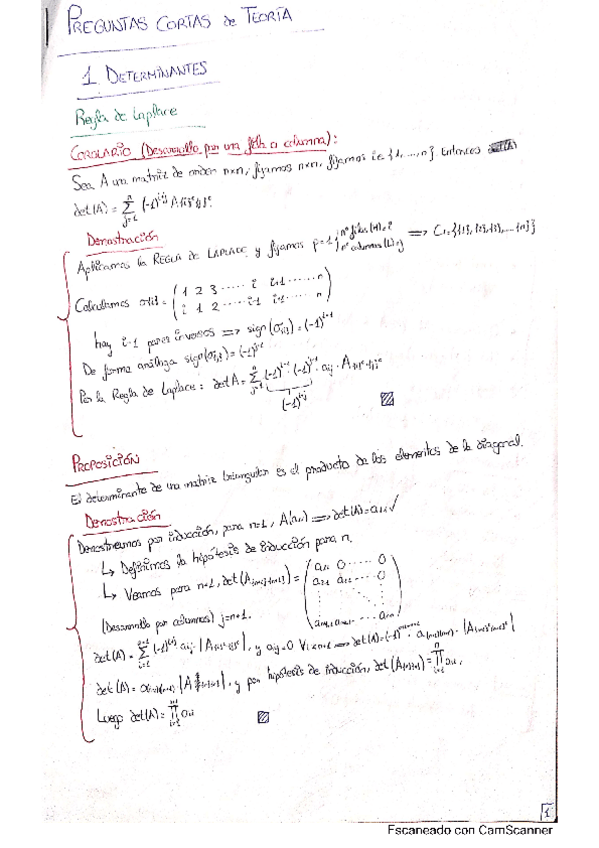 PREGUNTAS CORTAS de TEORÍA
1. DETERMINANTES
Regla de Laplace
COROLARIO (Desarrollo por una fila o columna):
Sea A una matriz de orden n×n, fijamos n×n, fijamos i∈{1,...,n}. Entonces
det(A) = Σ (-1)^{i+j}
Demostración
Aplicamos la REGLA DE LAPLACE y fijamos p=1 { nº filas (H)=i nº columnas (L)=j ⟹ C₁={{1},{2},{3},...,{n}}
Calculamos σ{i} = (1 2 3 ..... i i+1 ...... n
i 1 2 ..... i-1 i+1 ...... n)
hay i-1 pares inversos ⟹ sign(σ{i})=(-1)^{i-1}
De forma análoga sign(σ{j})=(-1)^{j-1}
Por la Regla de Laplace: det A = Σ (-1)^{i-1}·(-1)^{j-1}·aij·
(-1)^{i+j}
PROPOSICIÓN
El determinante de una matriz triangular es el producto de los elementos de la diagonal.
Demostración
Demostremos por inducción, para n=1, A(a₁₁) ⟹ det(A)=a₁₁ ✓
↳ Definimos la hipótesis de inducción para n.
↳ Veamos para n+1, det(A(n+1)(n+1)) = (a₁₁ 0 ..... 0
a₂₁ a₂₂ ..... 0
(Desarrollo por columnas) j=n+1.
det(A) = Σ (-1)^{i+j} aij · , y aij=0 ∀i<n+1 ⟹ det(A)=
det(A) = a(n+1)(n+1) , y por hipótesis de inducción,
Luego det(A)= ∏ aii
1
Escaneado con CamScanner